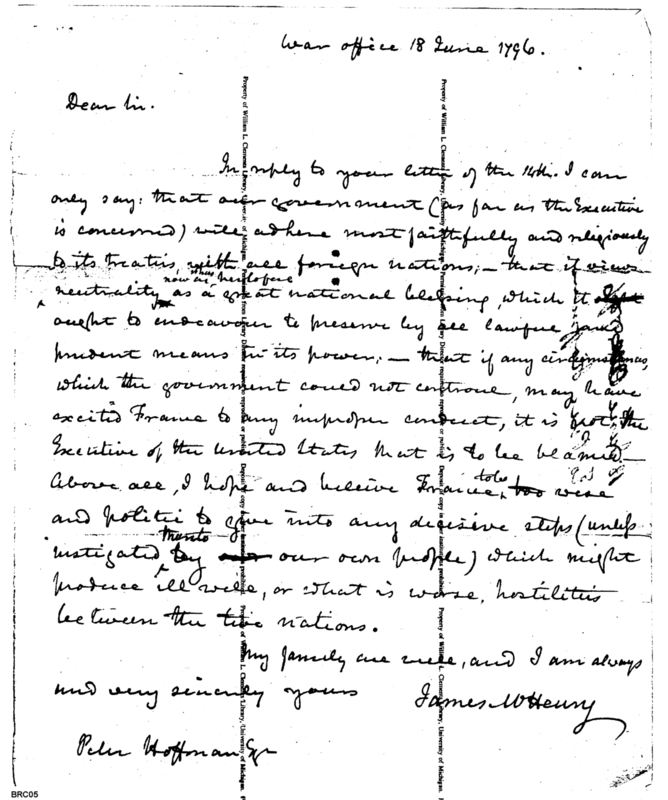 War office 18 June 1796.
Dear Sir.
In reply to your letter of the 14th. I can
only say: that our government (as far as the Executive
is concerned) will adhere most faithfully and religiously
to its treaties with all foreign nations; — that it views
now as heretofore
neutrality, as a great national blessing which it
ought to endeavour to preserve by all lawful and
prudent means in its power; — that if any circumstances,
which the government could not controul, may have
excited France to any improper conduct, it is not the
Executive of the United States that is to be blamed —
Above all, I hope and believe France, to be too wise
and politic to give into any decisive steps (unless
instigated thereto by our own people) which might
produce ill will, or what is worse, hostilities
between the two nations.
My family are well, and I am always
and very sincerely yours James McHenry
Peter Hoffman Esqr
Property of William L. Clements Library, University of Michigan.
Property of William L. Clements Library, University of Michigan.
BRC05